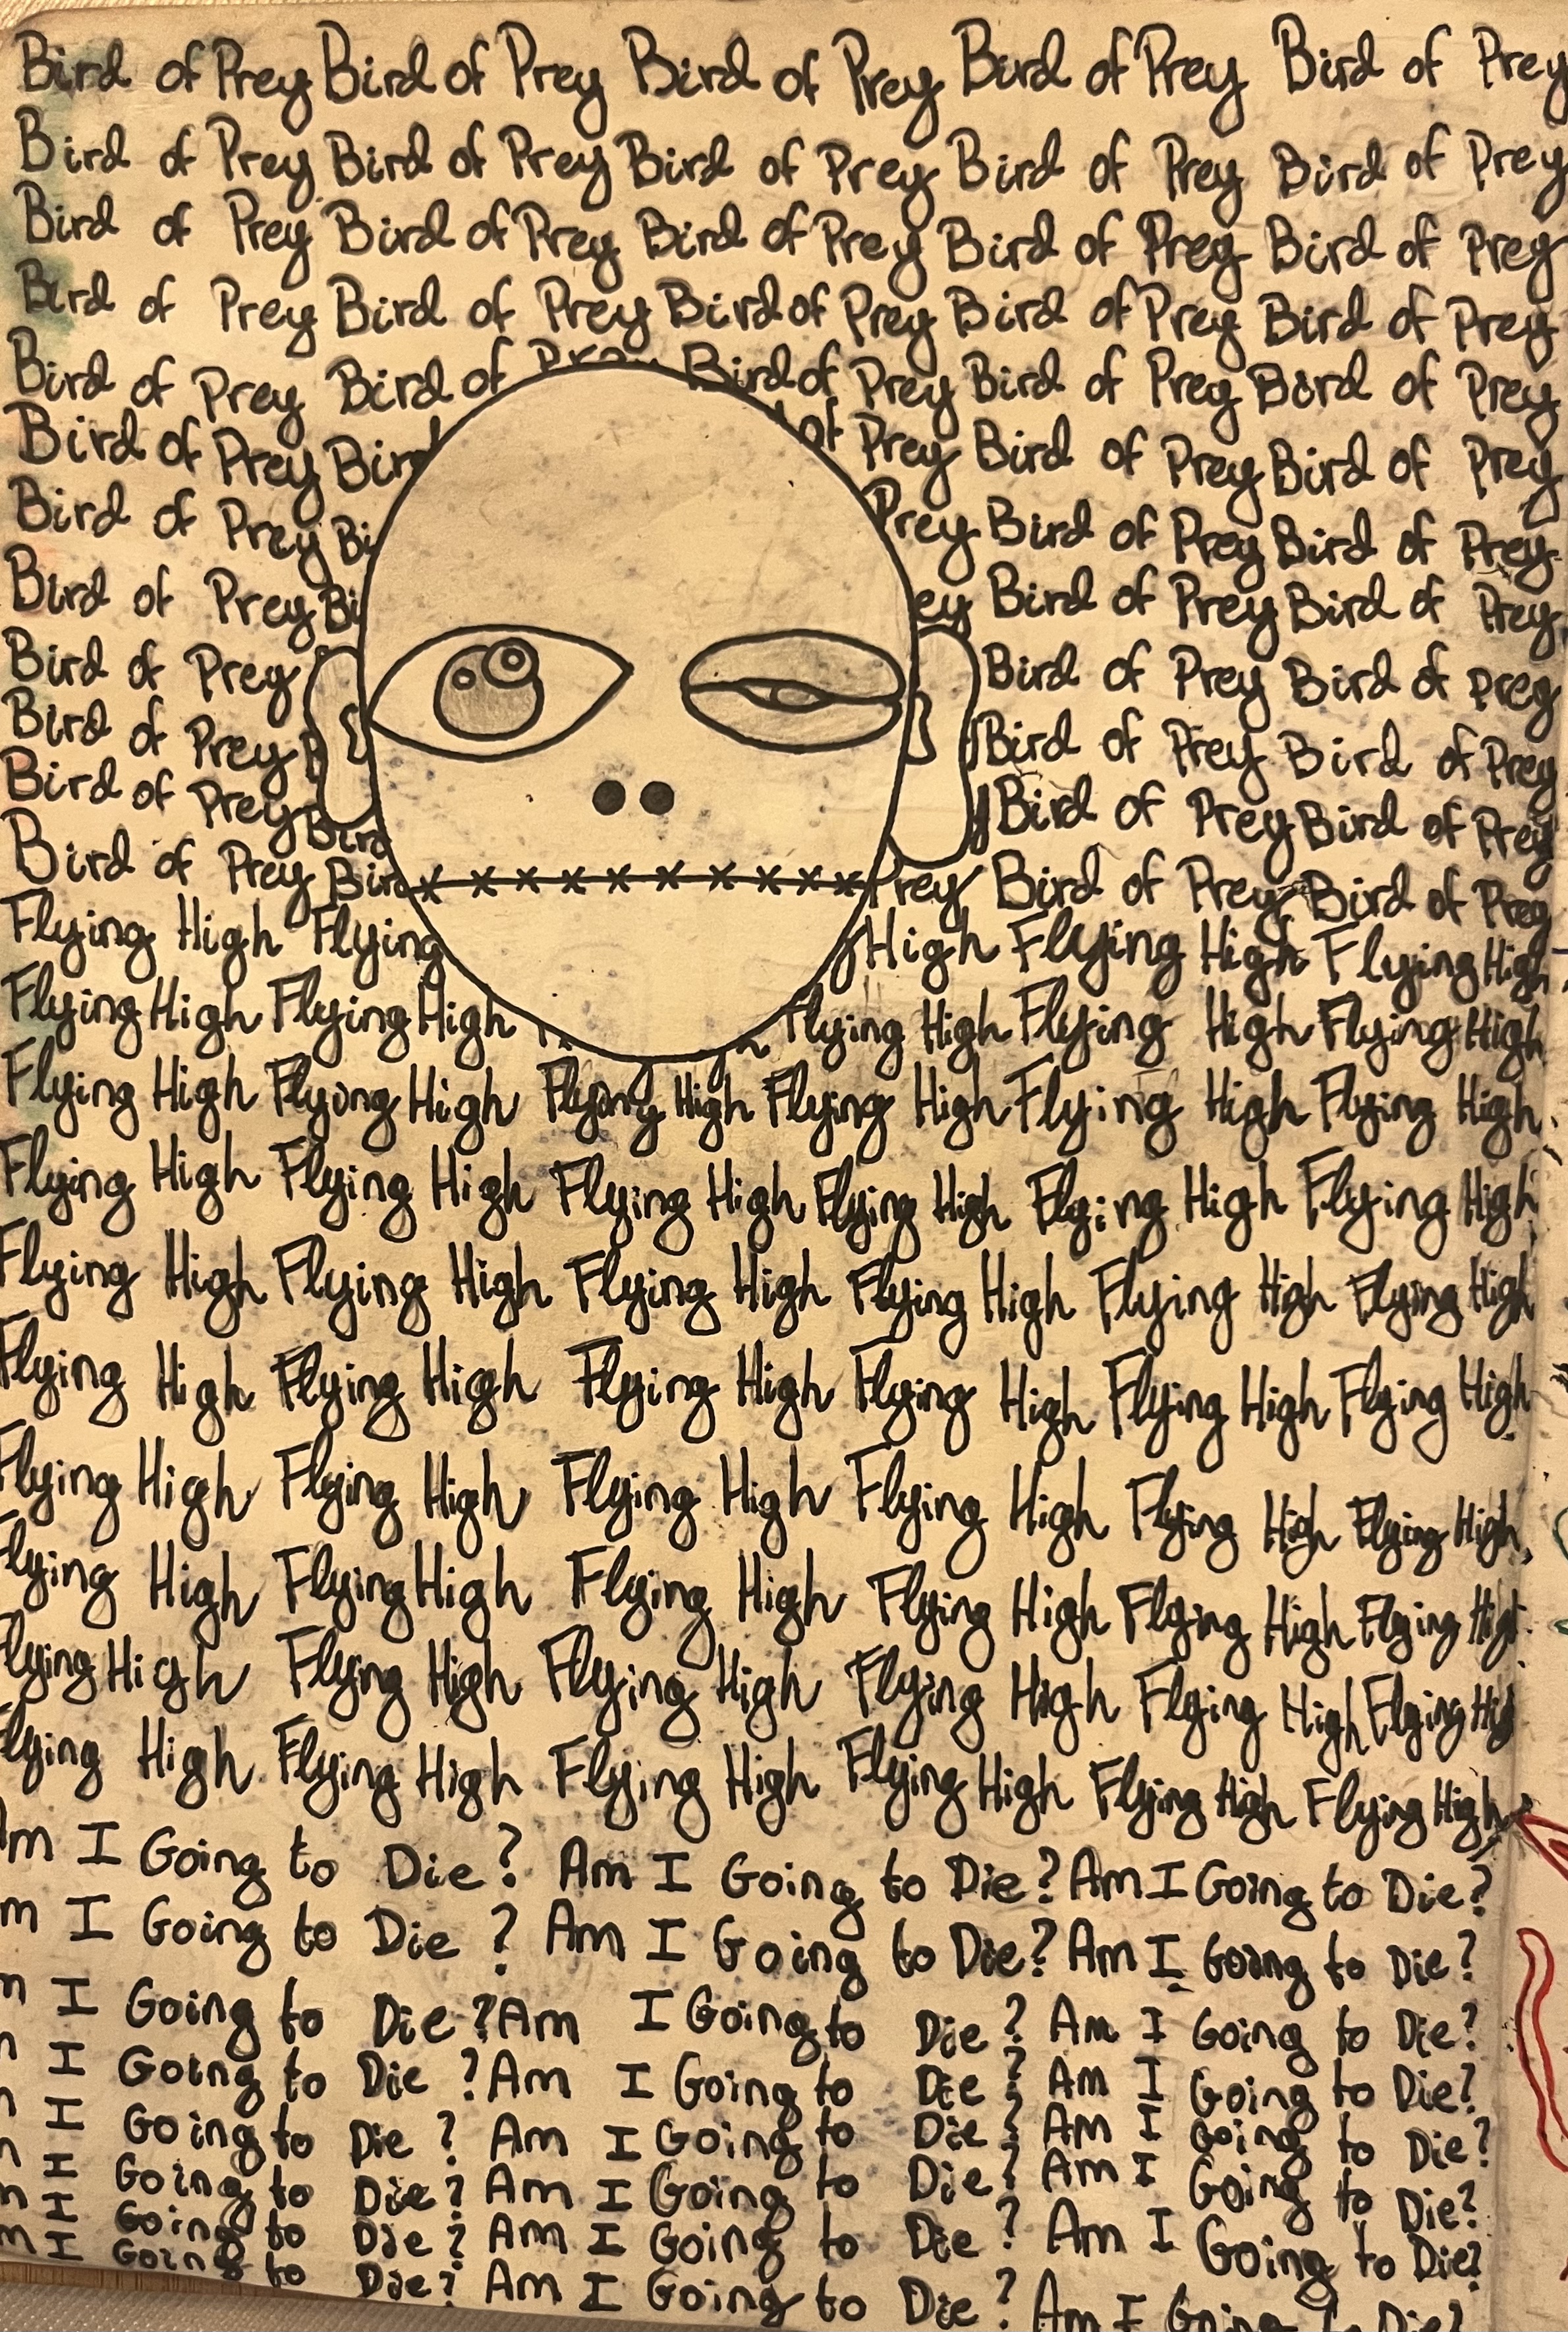 Bird of Prey Bird of Prey Bird of Prey Bird of Prey Bird of Prey
Bird of Prey Bird of Prey Bird of Prey Bird of Prey Bird of Prey
Bird of Prey Bird of Prey Bird of Prey Bird of Prey Bird of Prey
Bird of Prey Bird of Prey Bird of Prey Bird of Prey Bird of Prey
Bird of Prey Bird of Prey Bird of Prey Bird of Prey Bird of Prey
Bird of Prey Bird of Prey Bird of Prey Bird of Prey
Bird of Prey Bi Prey Bird of Prey Bird of Prey
Bird of Prey Bi ey Bird of Prey Bird of Prey
Bird of Prey Bird of Prey Bird of Prey
Bird of Prey B Bird of Prey Bird of Prey
Bird of Prey Bird y Bird of Prey Bird of Prey
Bird of Prey Bird Prey Bird of Prey Bird of Prey
Flying High Flying g High Flying High Flying High
Flying High Flying High Flying High Flying High Flying High
Flying High Flying High Flying High Flying High Flying High Flying High
Flying High Flying High Flying High Flying High Flying High Flying High
Flying High Flying High Flying High Flying High Flying High Flying High
Flying High Flying High Flying High Flying High Flying High Flying High
Flying High Flying High Flying High Flying High Flying High Flying High
Flying High Flying High Flying High Flying High Flying High Flying High
lying High Flying High Flying High Flying High Flying High Flying High
lying High Flying High Flying High Flying High Flying High Flying High
Am I Going to Die? Am I Going to Die? Am I Going to Die?
m I Going to Die? Am I Going to Die? Am I Going to Die?
m I Going to Die? Am I Going to Die? Am I Going to Die?
m I Going to Die? Am I Going to Die? Am I Going to Die?
m I Going to Die? Am I Going to Die? Am I Going to Die?
m I Going to Die? Am I Going to Die? Am I Going to Die?
m I Going to Die? Am I Going to Die? Am I Going to Die?
m I Going to Die? Am I Going to Die? Am I Going to Die?